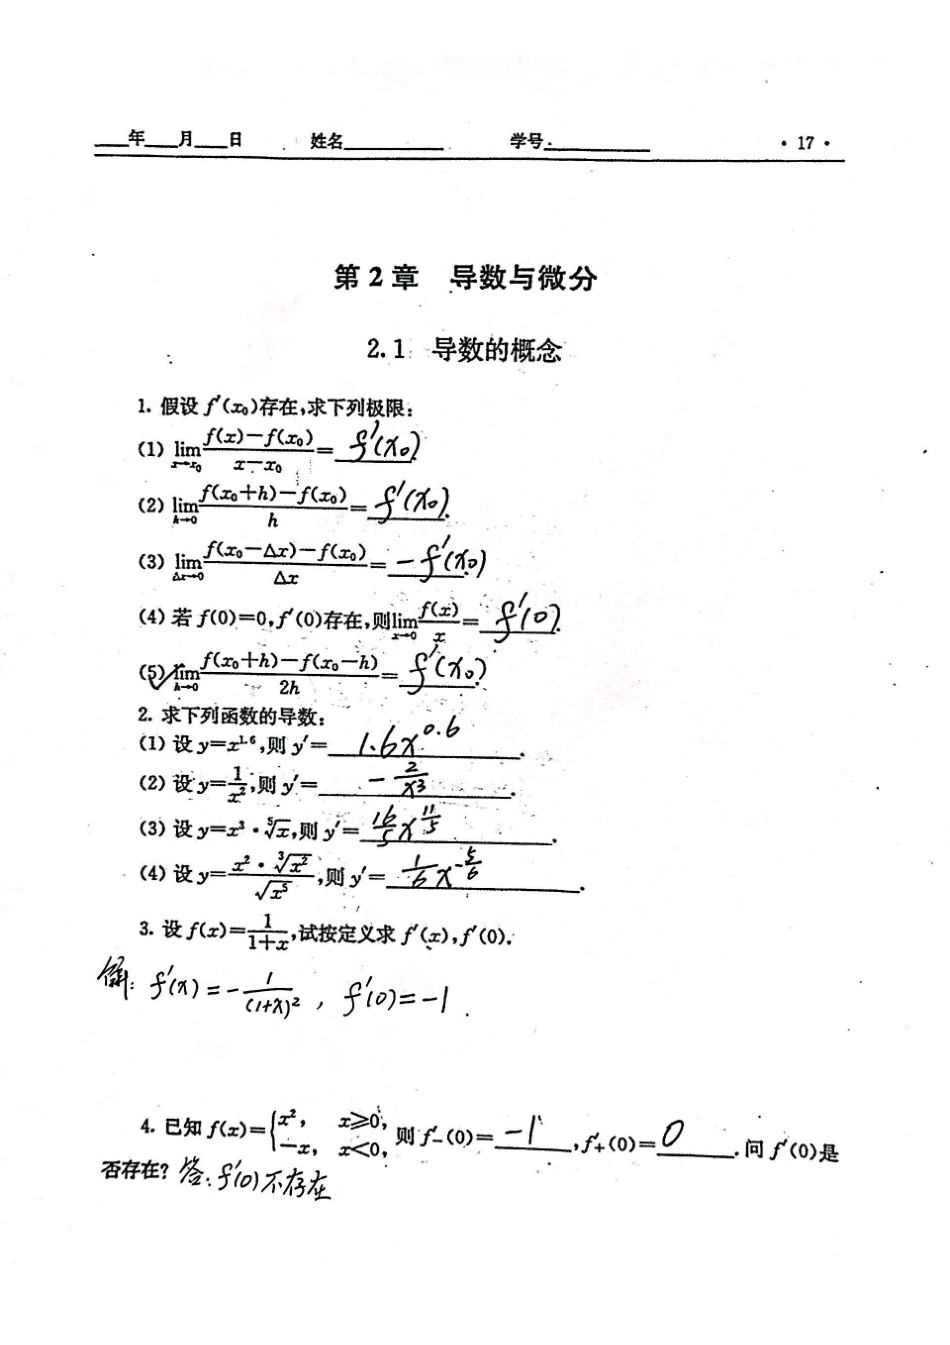 ___年___月___日 姓名_________ 学号_________ ·17·
第2章 导数与微分
2.1 导数的概念
1. 假设 f′(x₀)存在,求下列极限:
(1) lim_{x→x₀} (f(x)−f(x₀))/(x−x₀) = f′(x₀)
(2) lim_{h→0} (f(x₀+h)−f(x₀))/h = f′(x₀).
(3) lim_{Δx→0} (f(x₀−Δx)−f(x₀))/Δx = −f′(x₀)
(4) 若 f(0)=0,f′(0)存在,则lim_{x→0} f(x)/x = f′(0).
(5) lim_{h→0} (f(x₀+h)−f(x₀−h))/2h = f′(x₀).
2. 求下列函数的导数:
(1) 设 y=x^{1.6},则 y′= 1.6x^{0.6}.
(2) 设 y=1/x²,则 y′= −2/x³.
(3) 设 y=x³·⁵√x,则 y′= 16/5 x^{11/5}.
(4) 设 y=(x²·³√x²)/√x⁵,则 y′= 1/6 x^{−5/6}.
3. 设 f(x)=1/(1+x),试按定义求 f′(x),f′(0).
解: f′(x)=−1/(1+x)², f′(0)=−1.
4. 已知 f(x)={x², x≥0, −x, x<0, 则 f′₋(0)= −1 ,f′₊(0)= 0 .问 f′(0)是
否存在? 答:f′(0)不存在